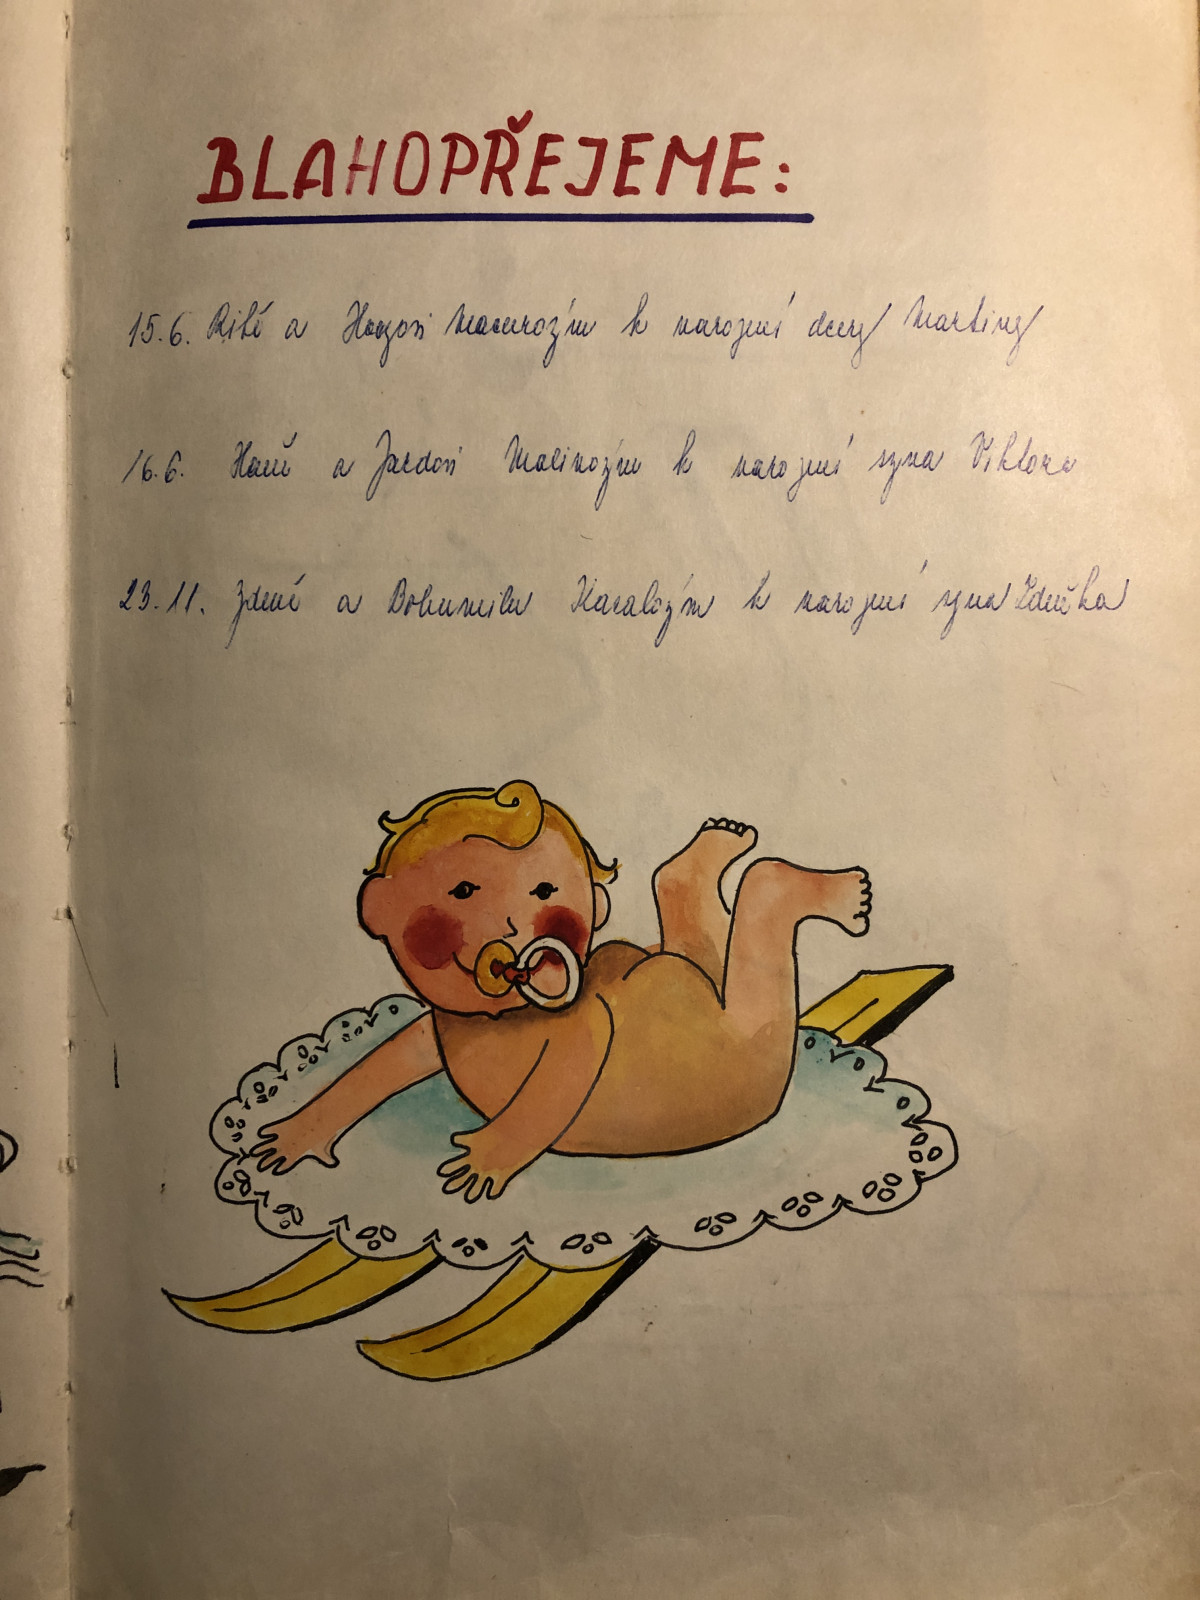 BLAHOPŘEJEME:
15.6. Ritě a k narození dcery Martiny
16.6. Haně a Jardovi Malinovým k narození syna Viktora
23.11. Zdeně a Bohumilu k narození syna Zdeňka